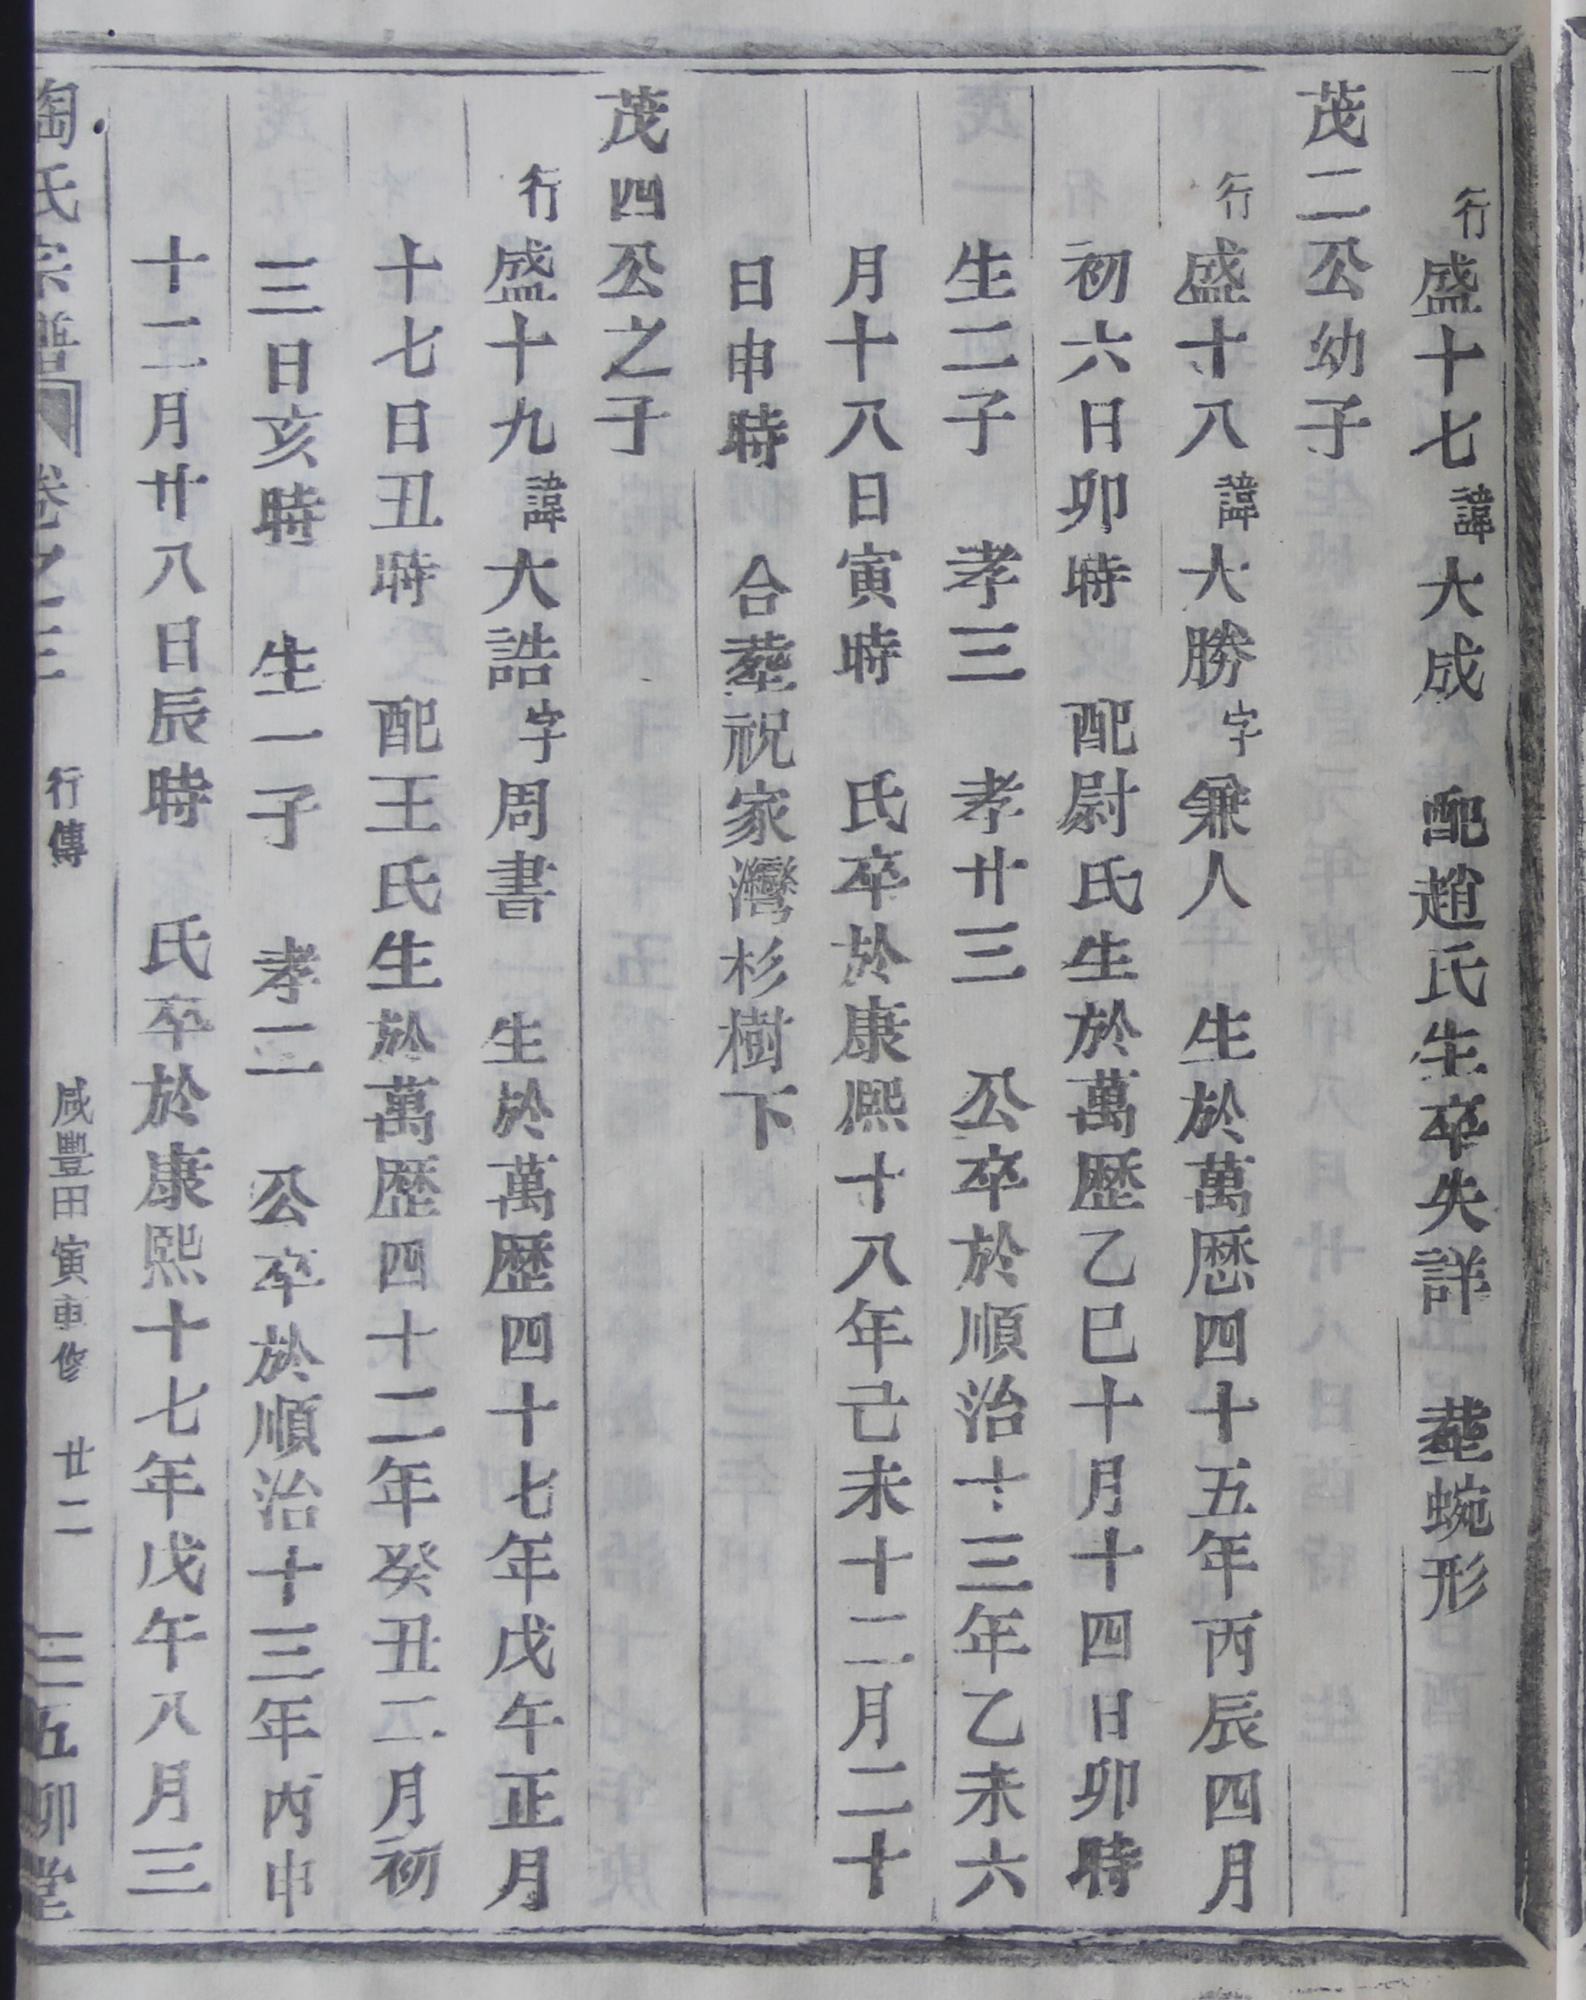 行盛十七諱大成　配趙氏生卒失詳　塟蜿形
茂二公幼子
行盛十八諱大勝字兼人　生於萬歷四十五年丙辰四月
初六日卯時　配尉氏生於萬歷乙巳十月十四日卯時
生二子　孝三　孝廿三　公卒於順治十三年乙未六
月十八日寅時　氏卒於康熙十八年己未十二月二十
日申時　合塟祝家灣杉樹下
茂四公之子
行盛十九諱大誥字周書　生於萬歷四十七年戊午正月
十七日丑時　配王氏生於萬歷四十二年癸丑二月初
三日亥時　生一子　孝二　公卒於順治十三年丙申
十二月廿八日辰時　氏卒於康熙十七年戊午八月三
陶氏宗譜　卷之三　行傳　咸豐甲寅重修　廿二　五柳堂